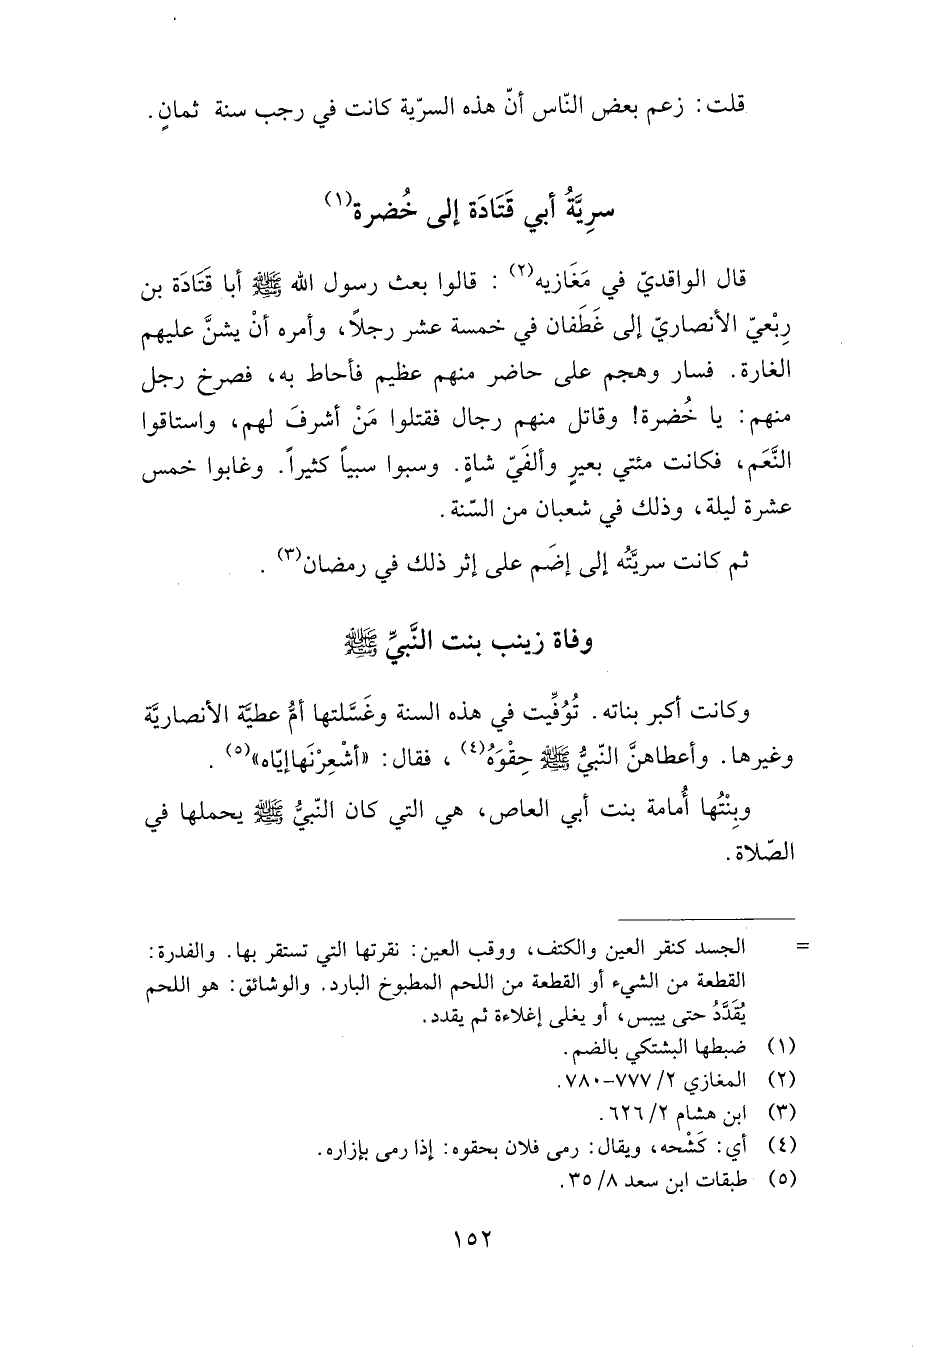 قلت: زعم بعض النّاس أنّ هذه السرّية كانت في رجب سنة ثمانٍ.
سرِيَّةُ أبي قَتَادَة إلى خُضرة(١)
قال الواقديّ في مَغَازيه(٢) : قالوا بعث رسول الله ﷺ أبا قَتَادَة بن
رِبْعيّ الأنصاريّ إلى غَطَفان في خمسة عشر رجلاً، وأمره أنْ يشنَّ عليهم
الغارة. فسار وهجم على حاضر منهم عظيم فأحاط به، فصرخ رجل
منهم: يا خُضرة! وقاتل منهم رجال فقتلوا مَنْ أشرفَ لهم، واستاقوا
النَّعَم، فكانت مئتي بعيرٍ وألفَيّ شاةٍ. وسبوا سبياً كثيراً. وغابوا خمس
عشرة ليلة، وذلك في شعبان من السّنة.
ثم كانت سريَّتُه إلى إضَم على إثر ذلك في رمضان(٣) .
وفاة زينب بنت النَّبيِّ ﷺ
وكانت أكبر بناته. تُوُفِّيت في هذه السنة وغَسَّلتها أمُّ عطيَّة الأنصاريَّة
وغيرها. وأعطاهنَّ النّبيُّ ﷺ حِقْوَهُ(٤) ، فقال: «أشْعِرْنَهاإيّاه»(٥) .
وبِنْتُها أُمامة بنت أبي العاص، هي التي كان النّبيُّ ﷺ يحملها في
الصّلاة.
= الجسد كنقر العين والكتف، ووقب العين: نقرتها التي تستقر بها. والفدرة:
القطعة من الشيء أو القطعة من اللحم المطبوخ البارد. والوشائق: هو اللحم
يُقَدَّدُ حتى ييبس، أو يغلى إغلاءة ثم يقدد.
(١) ضبطها البشتكي بالضم.
(٢) المغازي ٢/ ٧٧٧-٧٨٠.
(٣) ابن هشام ٢/ ٦٢٦.
(٤) أي: كَشْحه، ويقال: رمى فلان بحقوه: إذا رمى بإزاره.
(٥) طبقات ابن سعد ٨/ ٣٥.
١٥٢